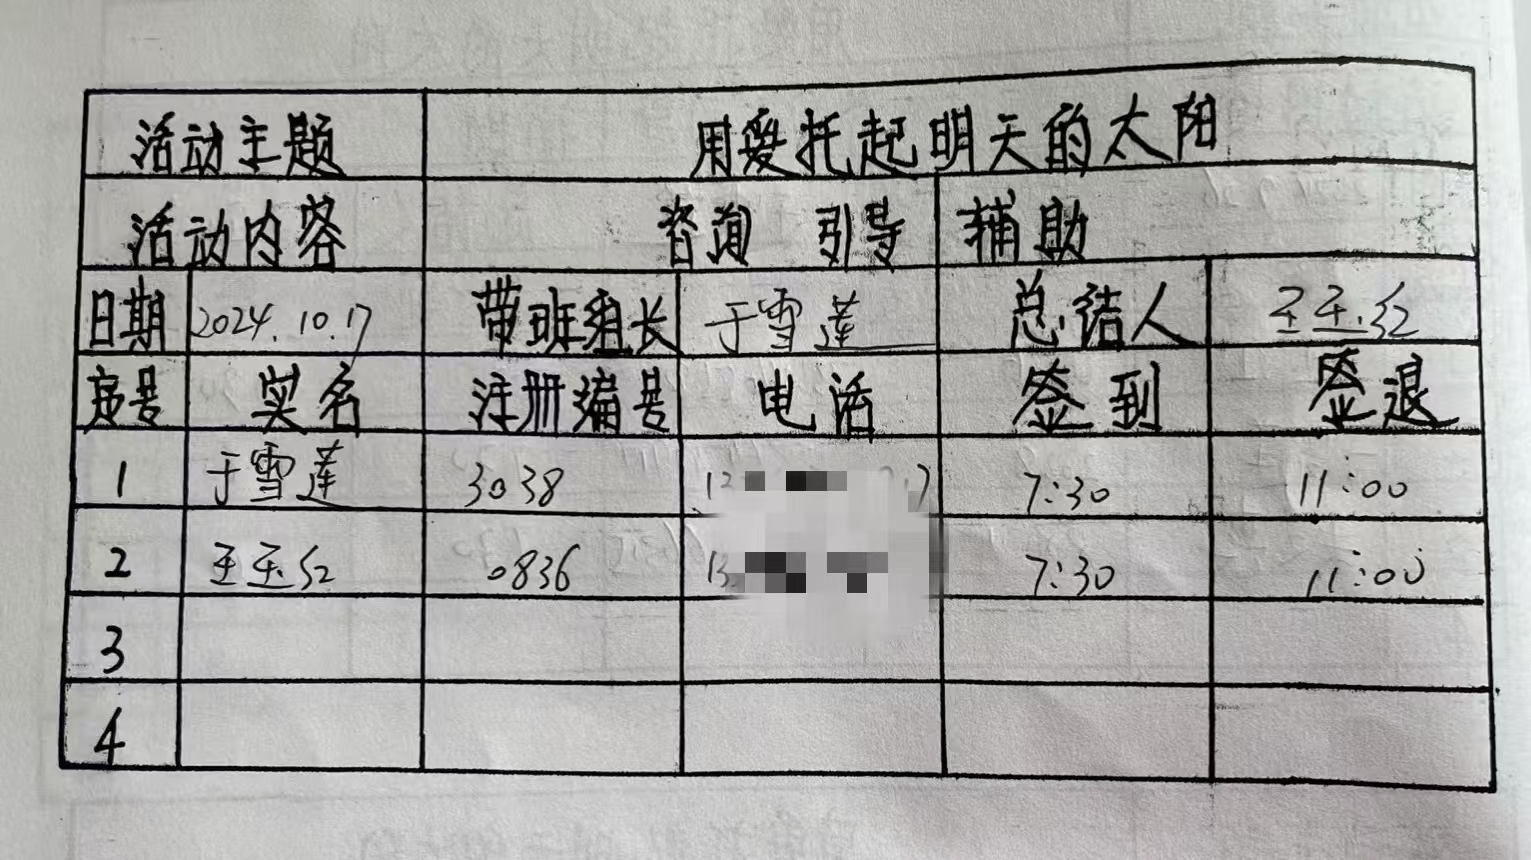 活动主题 用爱托起明天的太阳
活动内容 咨询 引导 辅助
日期 2024.10.17 带班组长 于雪莲 总结人 王玉红
序号 实名 注册编号 电话 签到 签退
1 于雪莲 3038 7:30 11:00
2 王玉红 0836 7:30 11:00
3
4